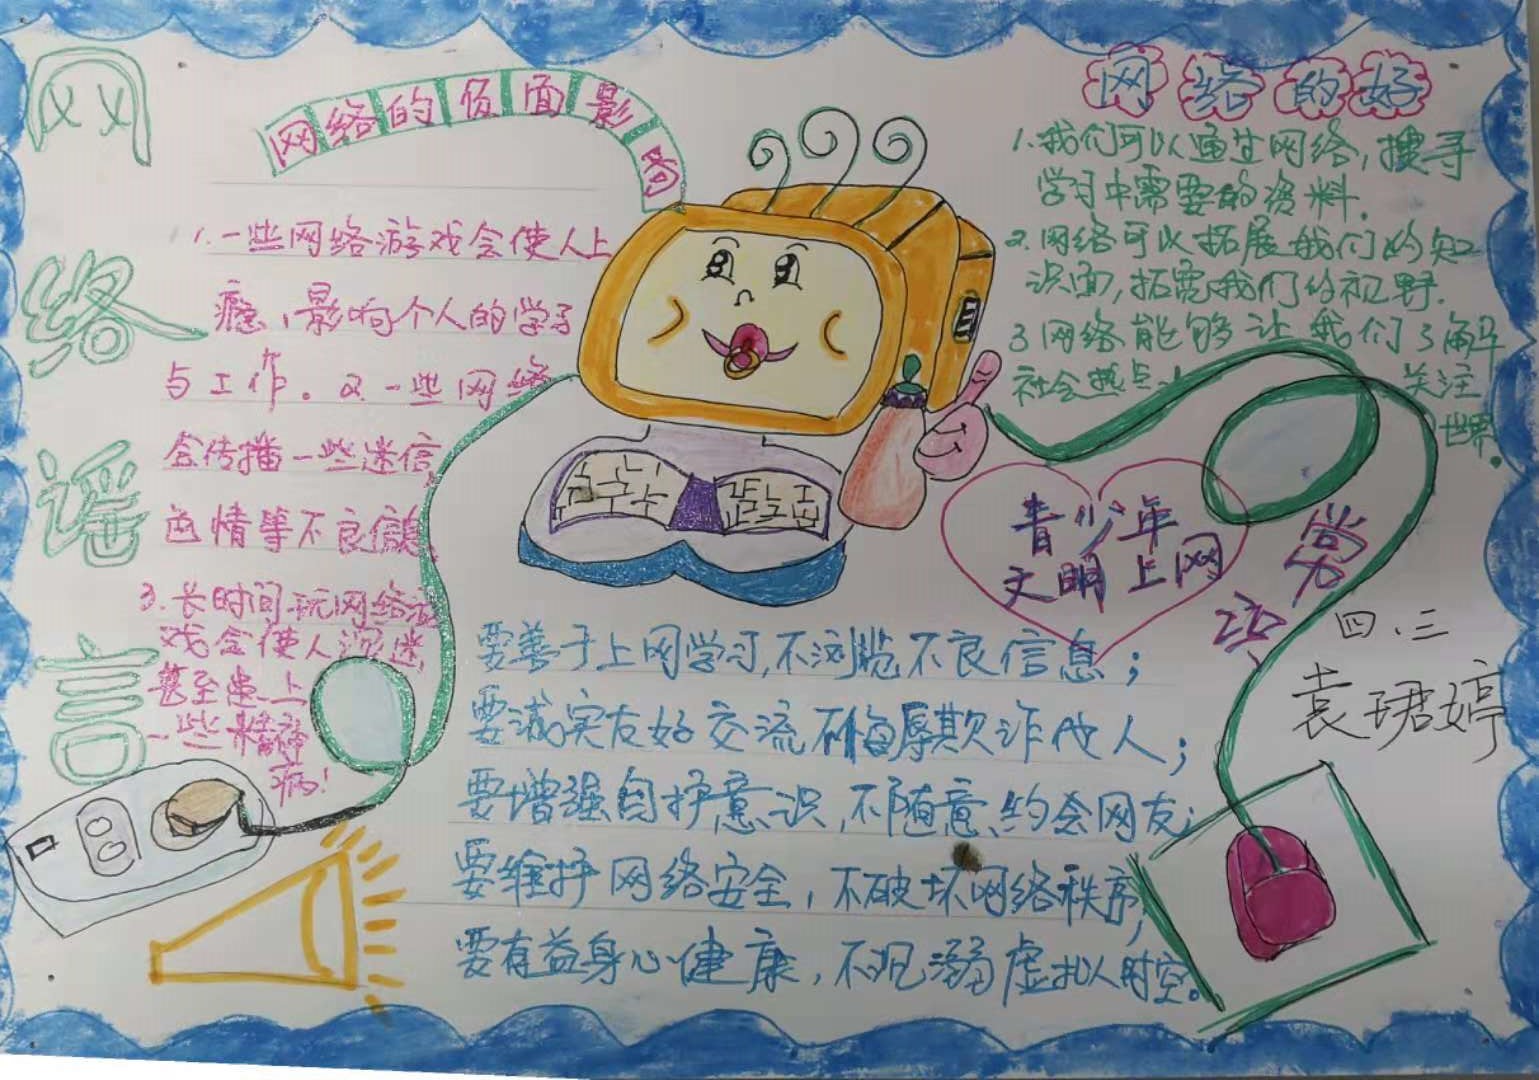 网络谣言
网络的负面影响
1.一些网络游戏会使人上
瘾,影响个人的学习
与工作。2.一些网络
会传播一些迷信,
色情等不良信息
3.长时间玩网络游
戏会使人沉迷,
甚至患上
一些精神
病!
网络的好
1.我们可以通过网络,搜寻
学习中需要的资料.
2.网络可以拓展我们的知
识面,拓宽我们的视野.
3网络能够让我们了解
社会热点,关注
世界。
青少年
文明上网
四、三
袁珺婷
要善于上网学习,不浏览不良信息;
要诚实友好交流不侮辱欺诈他人;
要增强自护意识,不随意约会网友;
要维护网络安全,不破坏网络秩序;
要有益身心健康,不沉溺虚拟时空。